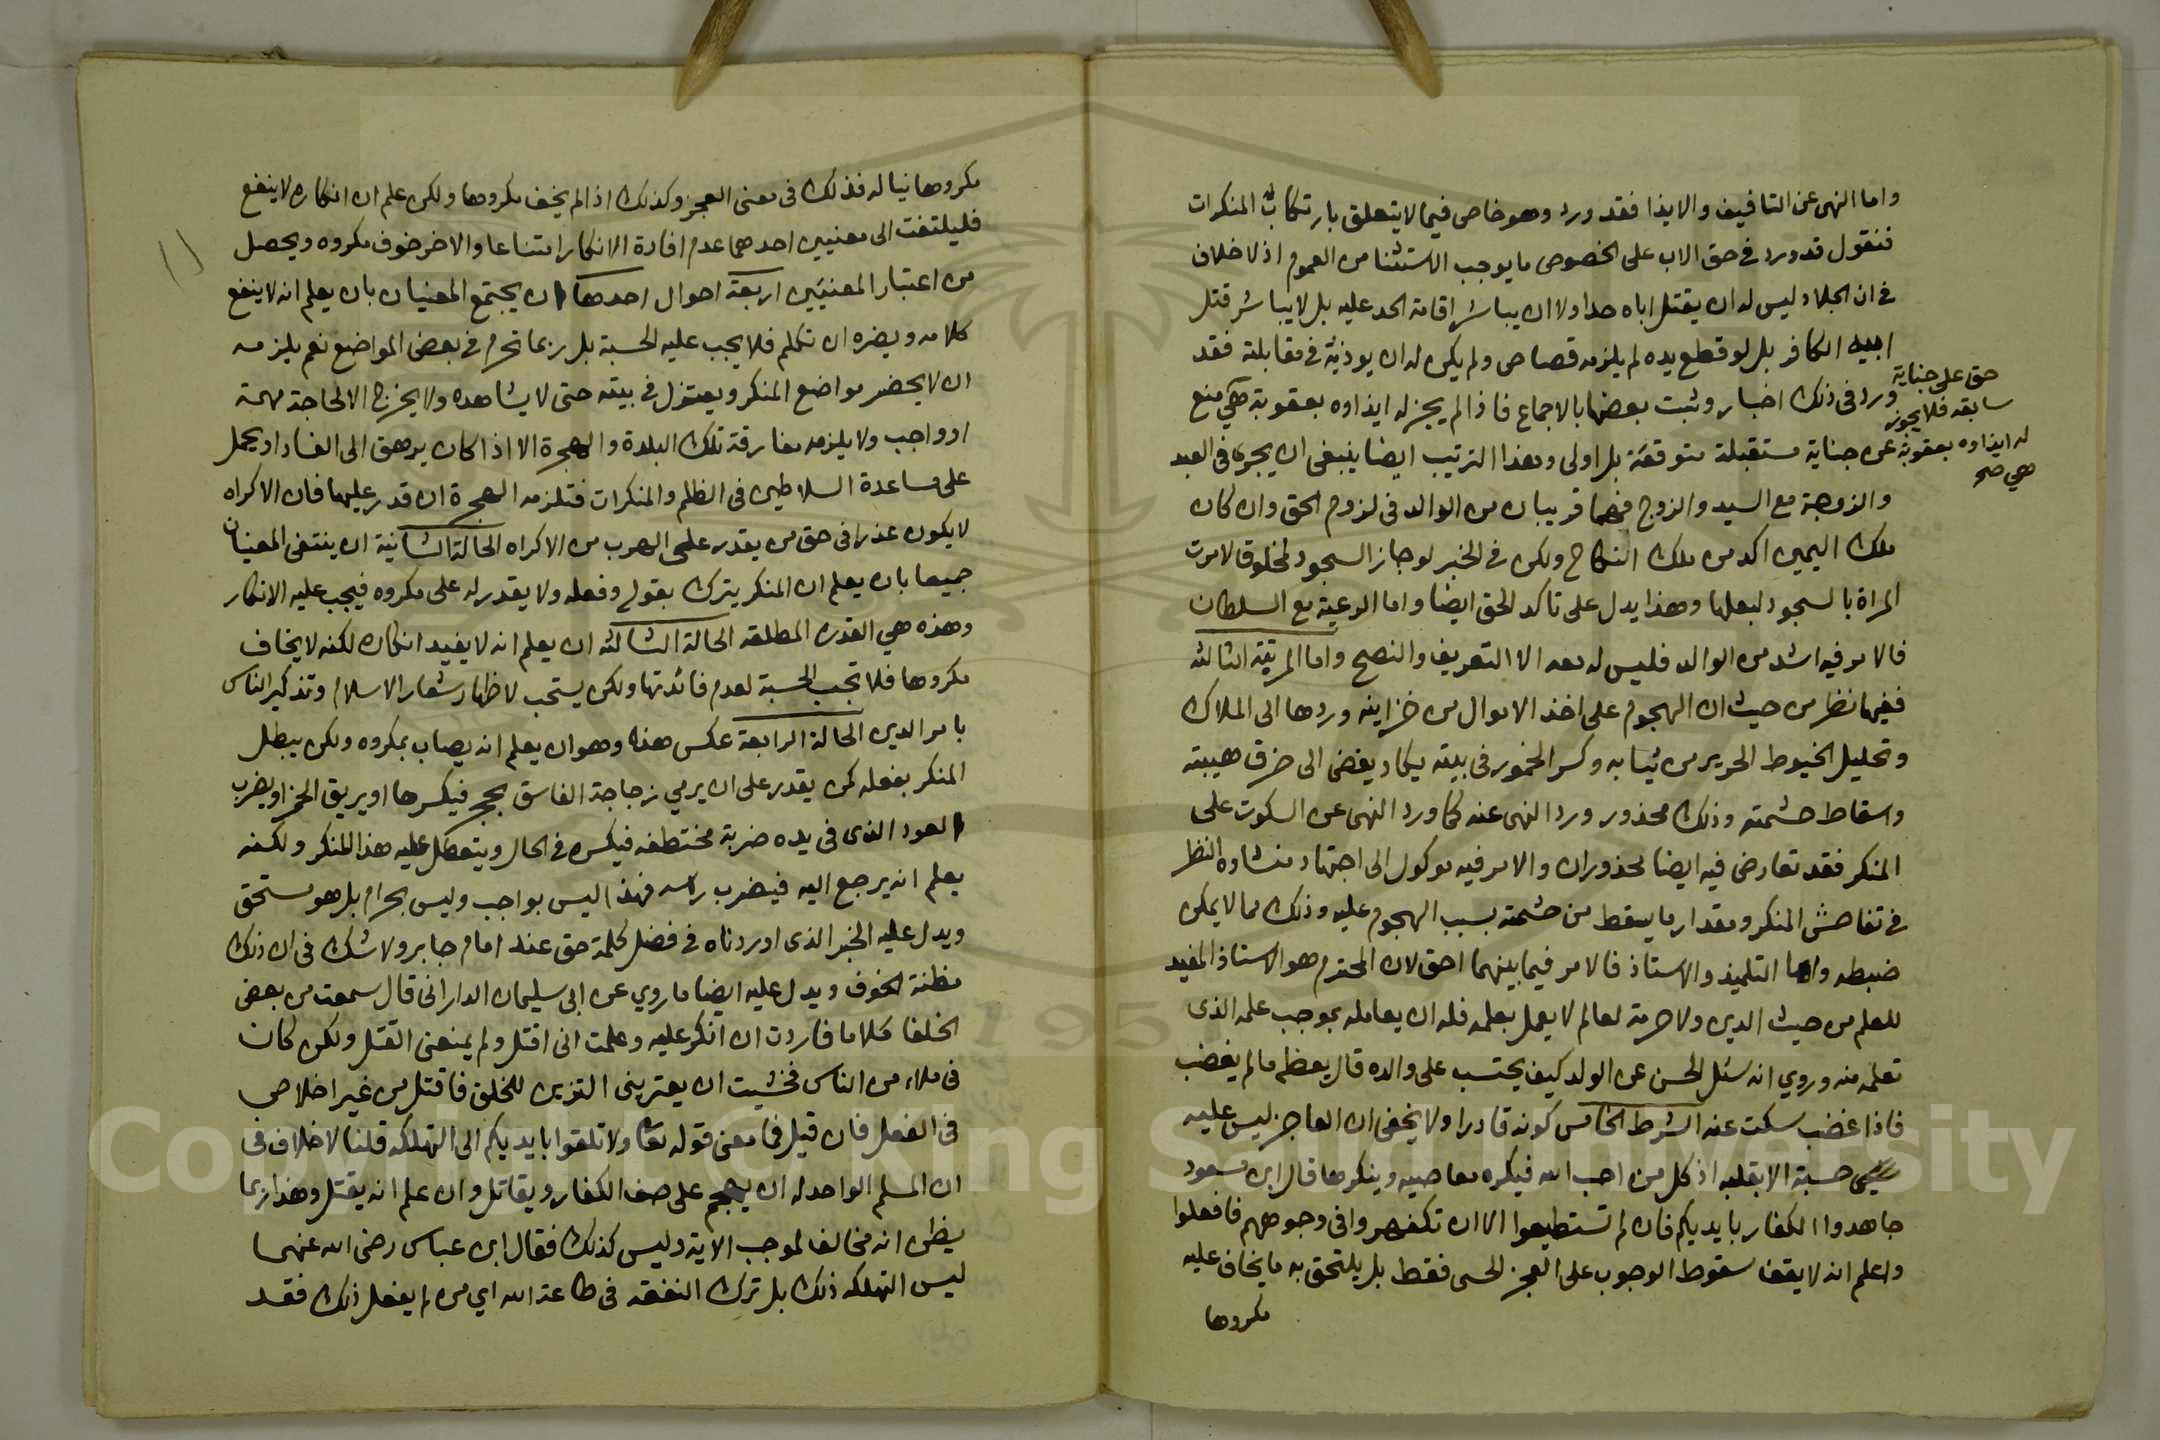 واما النهي عن التافيف والايذا فقد ورد وهو خاص فيما لا يتعلق بارتكاب المنكرات
فنقول قد ورد في حق الاب على الخصوص ما يوجب الاستثنا من العموم اذ لا خلاف
في ان الجلاد ليس له ان يقتل اباه حدا ولا ان يباشر اقامة الحد عليه بل لا يباشر قتل
ابيه الكافر بل لو قطع يده لم يلزمه قصاص ولم يكن له ان يوذيه في مقابلة فقد
ورد في ذلك اخبار وثبت بعضها بالاجماع فاذا لم يجز له ايذاوه بعقوبة هي منع
حق على جناية
سابقه فلا يجوز
له ايذاوه بعقوبة
هي صح
عن جناية مستقبلة متوقعة بل اولى وهذا الترتيب ايضا ينبغي ان يجرى في العبد
والزوجة مع السيد والزوج فهما قريبان من الوالد في لزوم الحق وان كان
ملك اليمين اكد من ملك النكاح ولكن في الخبر لو جاز السجود لمخلوق لامرت
المراة بالسجود لبعلها وهذا يدل على تاكد الحق ايضا واما الرعية مع السلطان
فالامر فيه اشد من الوالد فليس له معه الا التعريف والنصح واما المرتبة الثالثة
ففيها نظر من حيث ان الهجوم على اخذ الاموال من خزاينه وردها الى الملاك
وتحليل الخيوط الحرير من ثيابه وكسر الخمور في بيته يكاد يفضي الى خرق هيبته
واسقاط حشمته وذلك محذور ورد النهي عنه كما ورد النهي عن السكوت على
المنكر فقد تعارض فيه ايضا محذوران والامر فيه موكول الى اجتهاد منشاوه النظر
في تفاحش المنكر ومقدار ما يسقط من حشمته بسبب الهجوم عليه وذلك مما لا يمكن
ضبطه واما التلميذ والاستاذ فالامر فيما بينهما احق لان المحترم هو الاستاذ المفيد
للعلم من حيث الدين ولا حرمة لعالم لا يعمل بعلمه فله ان يعامله بموجب علمه الذي
تعلمه منه وروي انه سئل الحسن عن الولد كيف يحتسب على والده قال يعظه ما لم يغضب
فاذا غضب سكت عنه الشرط الخامس كونه قادرا ولا يخفى ان العاجز ليس عليه
حسبة الا بقلبه اذ كل من احب الله فيكره معاصيه وينكرها قال ابن مسعود
جاهدوا الكفار بايديكم فان لم تستطيعوا الا ان تكفهروا في وجوههم فافعلوا
واعلم انه لا يقف سقوط الوجوب على العجز الحسي فقط بل يلتحق به ما يخاف عليه
مكروها
مكروها نيا له فذلك في معنى العجز وكذلك اذا لم يخف مكروها ولكن علم ان انكاره لا ينفع
فليلتفت الى معنيين احدهما عدم افادة الانكار امتناعا والاخر خوف مكروه ويحصل
من اعتبار المعنيين اربعة احوال احدها ان يجتمع المعنيان بان يعلم انه لا ينفع
كلامه ويضره ان تكلم فلا يجب عليه الحسبة بل ربما تحرم في بعض المواضع نعم يلزمه
ان لا يحضر مواضع المنكر ويعتزل في بيته حتى لا يشاهده ولا يخرج الا لحاجة مهمة
او واجب ولا يلزمه مفارقة تلك البلدة والهجرة الا اذا كان يرهق الى الفساد او يحمل
على مساعدة السلاطين في الظلم والمنكرات فتلزمه الهجرة ان قدر عليها فان الاكراه
لا يكون عذرا في حق من يقدر على الهرب من الاكراه الحالة الثانية ان ينتفي المعنيان
جميعا بان يعلم ان المنكر يترك بقوله وفعله ولا يقدر له على مكروه فيجب عليه الانكار
وهذه هي القدره المطلقه الحالة الثالثه ان يعلم انه لا يفيد انكاره لكنه لا يخاف
مكروها فلا تجب الحسبة لعدم فائدتها ولكن يستحب لاظهار شعار الاسلام وتذكير الناس
بامر الدين الحالة الرابعة عكس هذه وهو ان يعلم انه يصاب بمكروه ولكن يبطل
المنكر بفعله كمن يقدر على ان يرمي زجاجة الفاسق بحجر فيكسرها او يريق الخمر او يضرب
العود الذي في يده ضربة مختطفه فيكسره في الحال ويتعطل عليه هذا المنكر ولكنه
يعلم انه يرجع اليه فيضرب راسه فهذا ليس بواجب وليس بحرام بل هو مستحق
ويدل عليه الخبر الذي اوردناه في فضل كلمة حق عند امام جاير ولا شك في ان ذلك
مظنة الخوف ويدل عليه ايضا ما روي عن ابي سليمان الداراني قال سمعت من بعض
الخلفا كلاما فاردت ان انكر عليه وعلمت اني اقتل ولم يمنعني القتل ولكن كان
في ملاء من الناس فخشيت ان يعتريني التزين للخلق فاقتل من غير اخلاص
في الفعل فان قيل فما معنى قوله تعا ولا تلقوا بايديكم الى التهلكه قلنا لا خلاف في
ان المسلم الواحد له ان يهجم على صف الكفار ويقاتل وان علم انه يقتل وهذا ربما
يظن انه مخالف لموجب الاية وليس كذلك فقال ابن عباس رضي الله عنهما
ليس التهلكه ذلك بل ترك النفقه في طاعة الله اي من لم يفعل ذلك فقد
Copyright © King Saud University